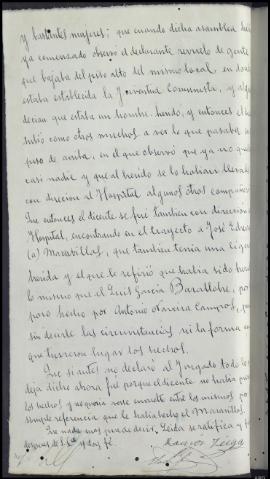 y bastantes mujeres; que cuando dicha asamblea había
ya comenzado observó el declarante revuelo de gente
que bajaba del piso alto del mismo local, en donde
estaba establecida la Juventud Comunista, y algunos
decían que estaba un hombre herido, y entonces el
subió como otros muchos a ver lo que pasaba al
piso de arriba, en el que observó que ya no quedaba
casi nadie y que al herido se lo habían llevado
con dirección al Hospital algunos otros compañeros
Que entonces el dicente se fué tambien con dirección al
Hospital, encontrando en el trayecto a José
(a) Maravillas, que tambien tenía una ligera
herida y el que le refirió que había sido herido
lo mismo que el Luis García Barallobre, por
hecho por Antonio Naveira Campos, pero
sin decirle las circunstancias ni la forma en
que tuvieron lugar los hechos.
Que si antes no declaró al Juzgado todo lo que
deja dicho ahora fué porque el dicente no había
los hechos, y no quería verse envuelto en los mismos por
simple referencia que le había hecho el Maravillas.
Que nada mas puede decir. Leida se ratifica y
despues de S.Sª y doy fé.
Ramon